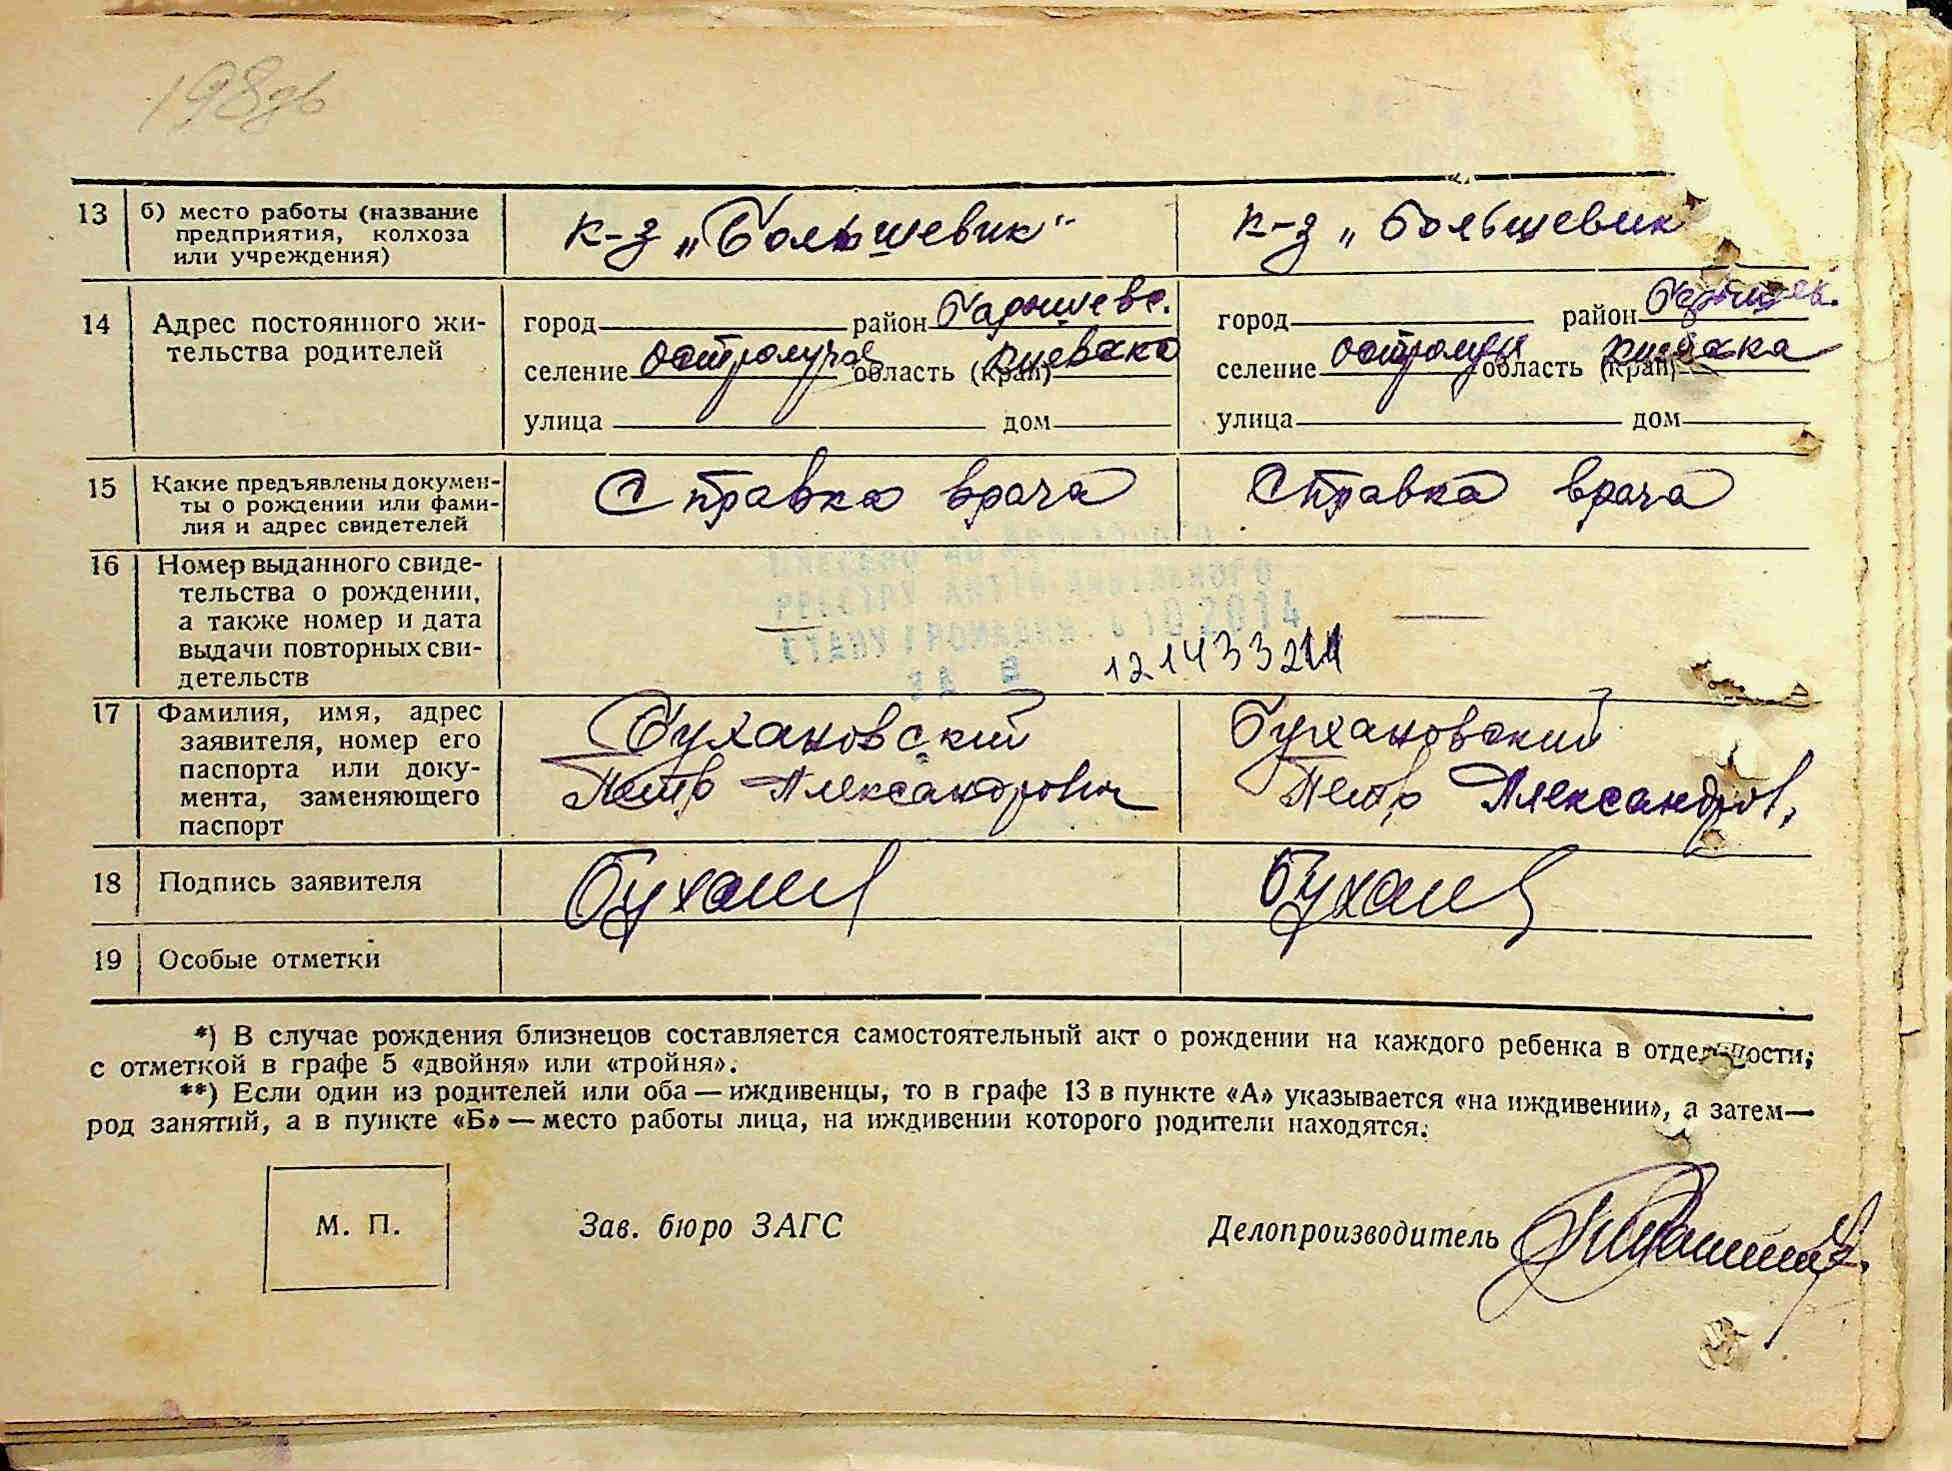 198 об
13 б) место работы (название предприятия, колхоза или учреждения) к-з „Большевик“ к-з „Большевик
14 Адрес постоянного жи-
тельства родителей
город район Барышевс.
селение Остролучье область (край) Киевска
улица дом
город район Барышев.
селение область (край) Киевска
улица дом
15 Какие предъявлены докумен-
ты о рождении или фами-
лия и адрес свидетелей
Справка врача Справка врача
16 Номер выданного свиде-
тельства о рождении,
а также номер и дата
выдачи повторных сви-
детельств
ВНЕСЕНО ДО ДЕРЖАВНОГО
РЕЄСТРУ АКТІВ ЦИВІЛЬНОГО
СТАНУ ГРОМАДЯН 10 2014
ЗА
17 Фамилия, имя, адрес
заявителя, номер его
паспорта или доку-
мента, заменяющего
паспорт
Бухановский
Петр Александрович
Бухановский
Петр Александров.
18 Подпись заявителя
19 Особые отметки
*) В случае рождения близнецов составляется самостоятельный акт о рождении на каждого ребенка в отдельности;
с отметкой в графе 5 «двойня» или «тройня».
**) Если один из родителей или оба — иждивенцы, то в графе 13 в пункте «А» указывается «на иждивении», а затем —
род занятий, а в пункте «Б» — место работы лица, на иждивении которого родители находятся.
М. П. Зав. бюро ЗАГС Делопроизводитель